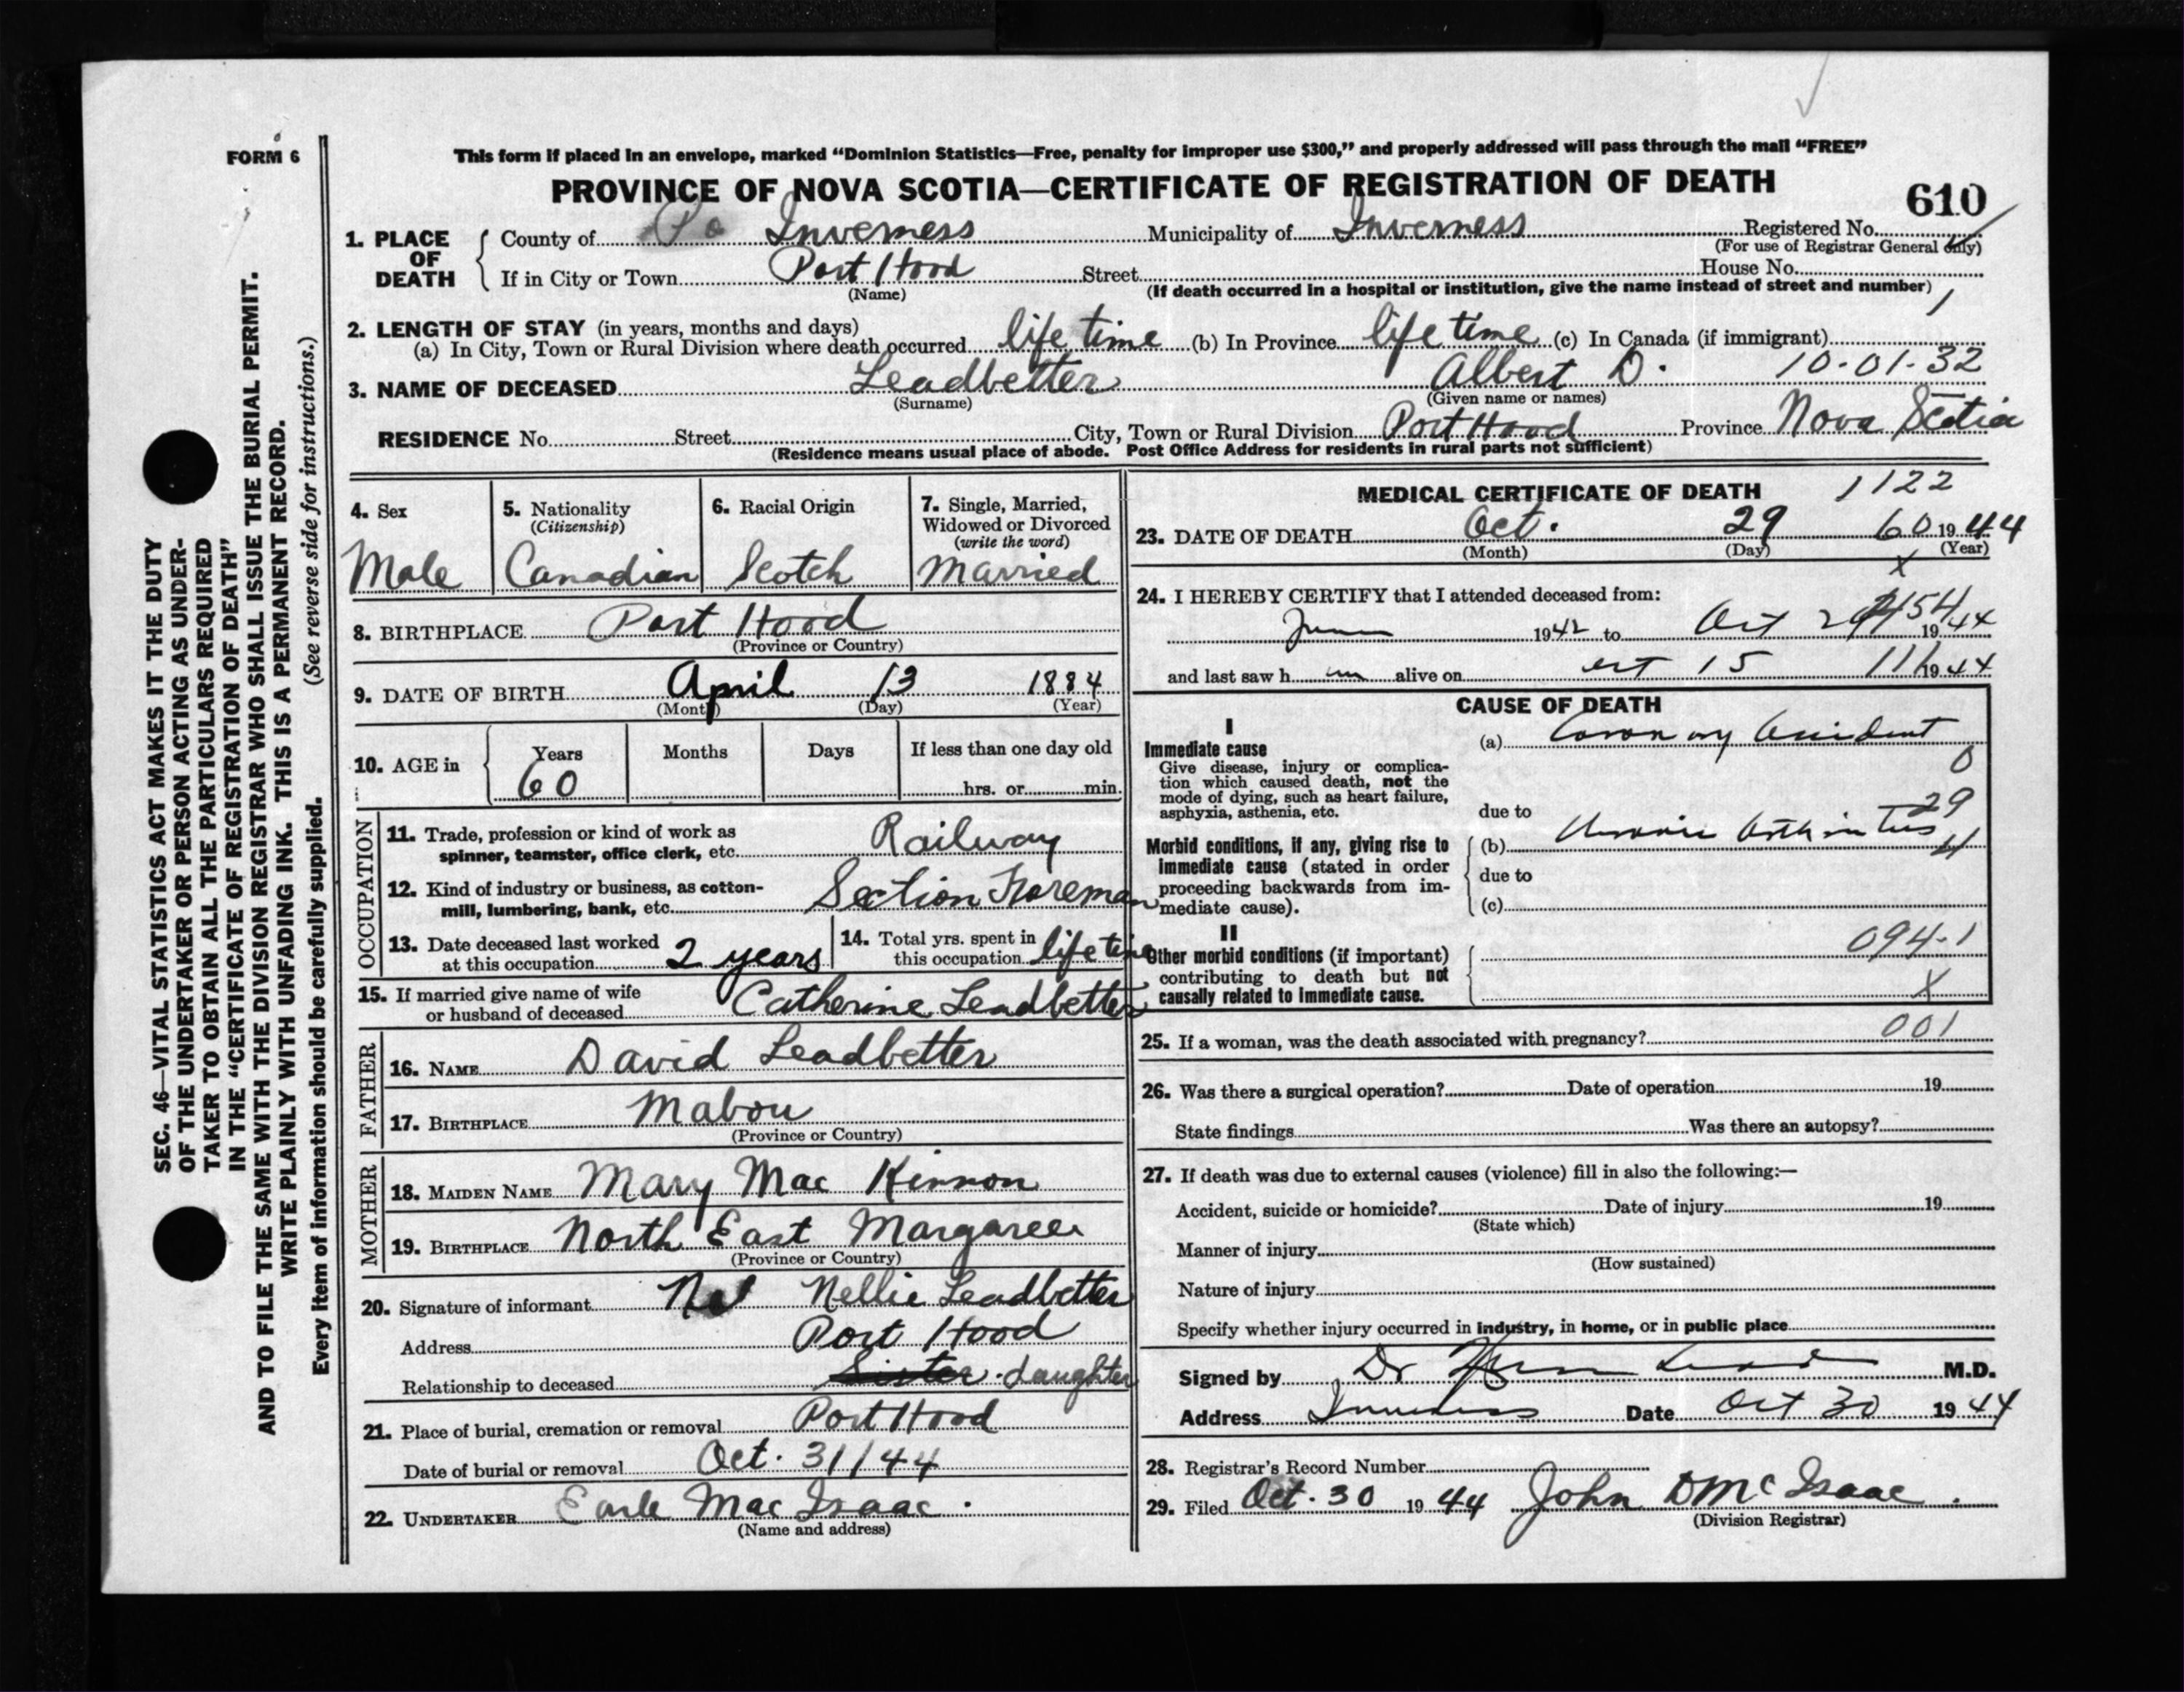 FORM 6
This form if placed in an envelope, marked "Dominion Statistics—Free, penalty for improper use $300," and properly addressed will pass through the mail "FREE"
PROVINCE OF NOVA SCOTIA—CERTIFICATE OF REGISTRATION OF DEATH
610
1. PLACE OF DEATH
County of Po Inverness Municipality of Inverness Registered No.
(For use of Registrar General only)
If in City or Town Port Hood Street House No.
(Name) (If death occurred in a hospital or institution, give the name instead of street and number)
2. LENGTH OF STAY (in years, months and days)
(a) In City, Town or Rural Division where death occurred life time (b) In Province life time (c) In Canada (if immigrant)
3. NAME OF DECEASED Leadbetter Albert D. 10-01-32
(Surname) (Given name or names)
RESIDENCE No. Street City, Town or Rural Division Port Hood Province Nova Scotia
(Residence means usual place of abode. Post Office Address for residents in rural parts not sufficient)
4. Sex Male
5. Nationality (Citizenship) Canadian
6. Racial Origin Scotch
7. Single, Married, Widowed or Divorced (write the word) Married
8. BIRTHPLACE Port Hood
(Province or Country)
9. DATE OF BIRTH April 13 1884
(Month) (Day) (Year)
10. AGE in Years Months Days If less than one day old
60 hrs. or min.
OCCUPATION
11. Trade, profession or kind of work as spinner, teamster, office clerk, etc. Railway
12. Kind of industry or business, as cotton-mill, lumbering, bank, etc. Section Foreman
13. Date deceased last worked at this occupation 2 years
14. Total yrs. spent in this occupation life time
15. If married give name of wife or husband of deceased Catherine Leadbetter
FATHER
16. NAME David Leadbetter
17. BIRTHPLACE Mabou
(Province or Country)
MOTHER
18. MAIDEN NAME Mary Mac Kinnon
19. BIRTHPLACE North East Margaree
(Province or Country)
20. Signature of informant Nellie Leadbetter
Address Port Hood
Relationship to deceased Sister. daughter
21. Place of burial, cremation or removal Port Hood
Date of burial or removal Oct. 31/44
22. UNDERTAKER Earle Mac Isaac.
(Name and address)
MEDICAL CERTIFICATE OF DEATH 1122
23. DATE OF DEATH Oct. 29 60 1944
(Month) (Day) (Year)
X
24. I HEREBY CERTIFY that I attended deceased from:
June 1942 to Oct 1944
and last saw h im alive on oct 15 1944
CAUSE OF DEATH
I
Immediate cause
Give disease, injury or complication which caused death, not the mode of dying, such as heart failure, asphyxia, asthenia, etc.
(a) Coronary Accident
0
due to
29
Morbid conditions, if any, giving rise to immediate cause (stated in order proceeding backwards from immediate cause).
(b) Chronic Arthritis
due to
(c)
II
Other morbid conditions (if important) contributing to death but not causally related to immediate cause.
094-1
X
25. If a woman, was the death associated with pregnancy? 001
26. Was there a surgical operation? Date of operation 19
State findings Was there an autopsy?
27. If death was due to external causes (violence) fill in also the following:—
Accident, suicide or homicide? Date of injury 19
(State which)
Manner of injury
(How sustained)
Nature of injury
Specify whether injury occurred in industry, in home, or in public place
Signed by Dr M.D.
Address Inverness Date Oct 30 1944
28. Registrar's Record Number
29. Filed Oct. 30 1944 John D McIsaac.
(Division Registrar)
SEC. 46—VITAL STATISTICS ACT MAKES IT THE DUTY
OF THE UNDERTAKER OR PERSON ACTING AS UNDER-
TAKER TO OBTAIN ALL THE PARTICULARS REQUIRED
IN THE "CERTIFICATE OF REGISTRATION OF DEATH"
AND TO FILE THE SAME WITH THE DIVISION REGISTRAR WHO SHALL ISSUE THE BURIAL PERMIT.
WRITE PLAINLY WITH UNFADING INK. THIS IS A PERMANENT RECORD.
Every item of information should be carefully supplied. (See reverse side for instructions.)